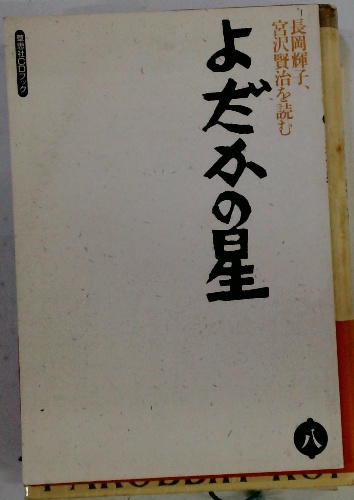 長岡輝子、
宮沢賢治を読む
よだかの星
草思社CDブック
八